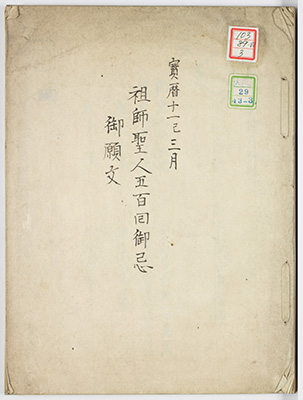 寳暦十一巳三月
祖師聖人五百回御忌
御願文
103
3
29
43-3